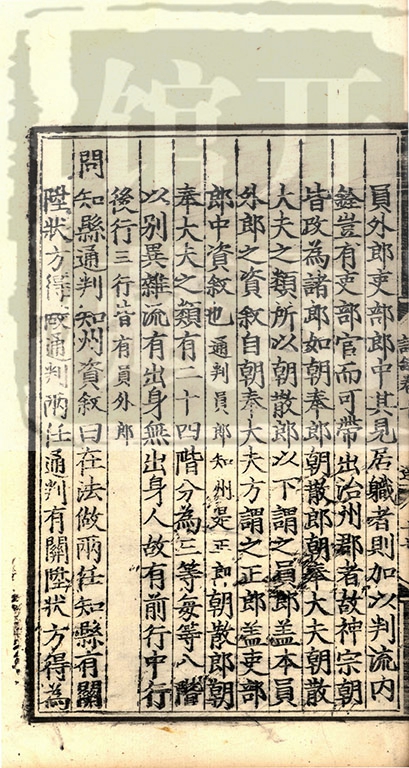 員外郎吏部郎中其見居職者則加以判流内
銓豈有吏部官而可帶出治州郡者故神宗朝
皆政為諸郎如朝奉郎朝散郎朝奉大夫朝散
大夫之類所以朝散郎以下謂之員郎盖本員
外郎之資叙自朝奉大夫方謂之正郎盖吏部
郎中資叙也通判員郎知州是正郎朝散郎朝
奉大夫之類有二十四階分為三等每等八階
以別異雜流有出身無出身人故有前行中行
後行三行皆有員外郎
問知縣通判知州資叙曰在法做兩任知縣有關
陞狀方得做通判兩任通判有關陞狀方得為